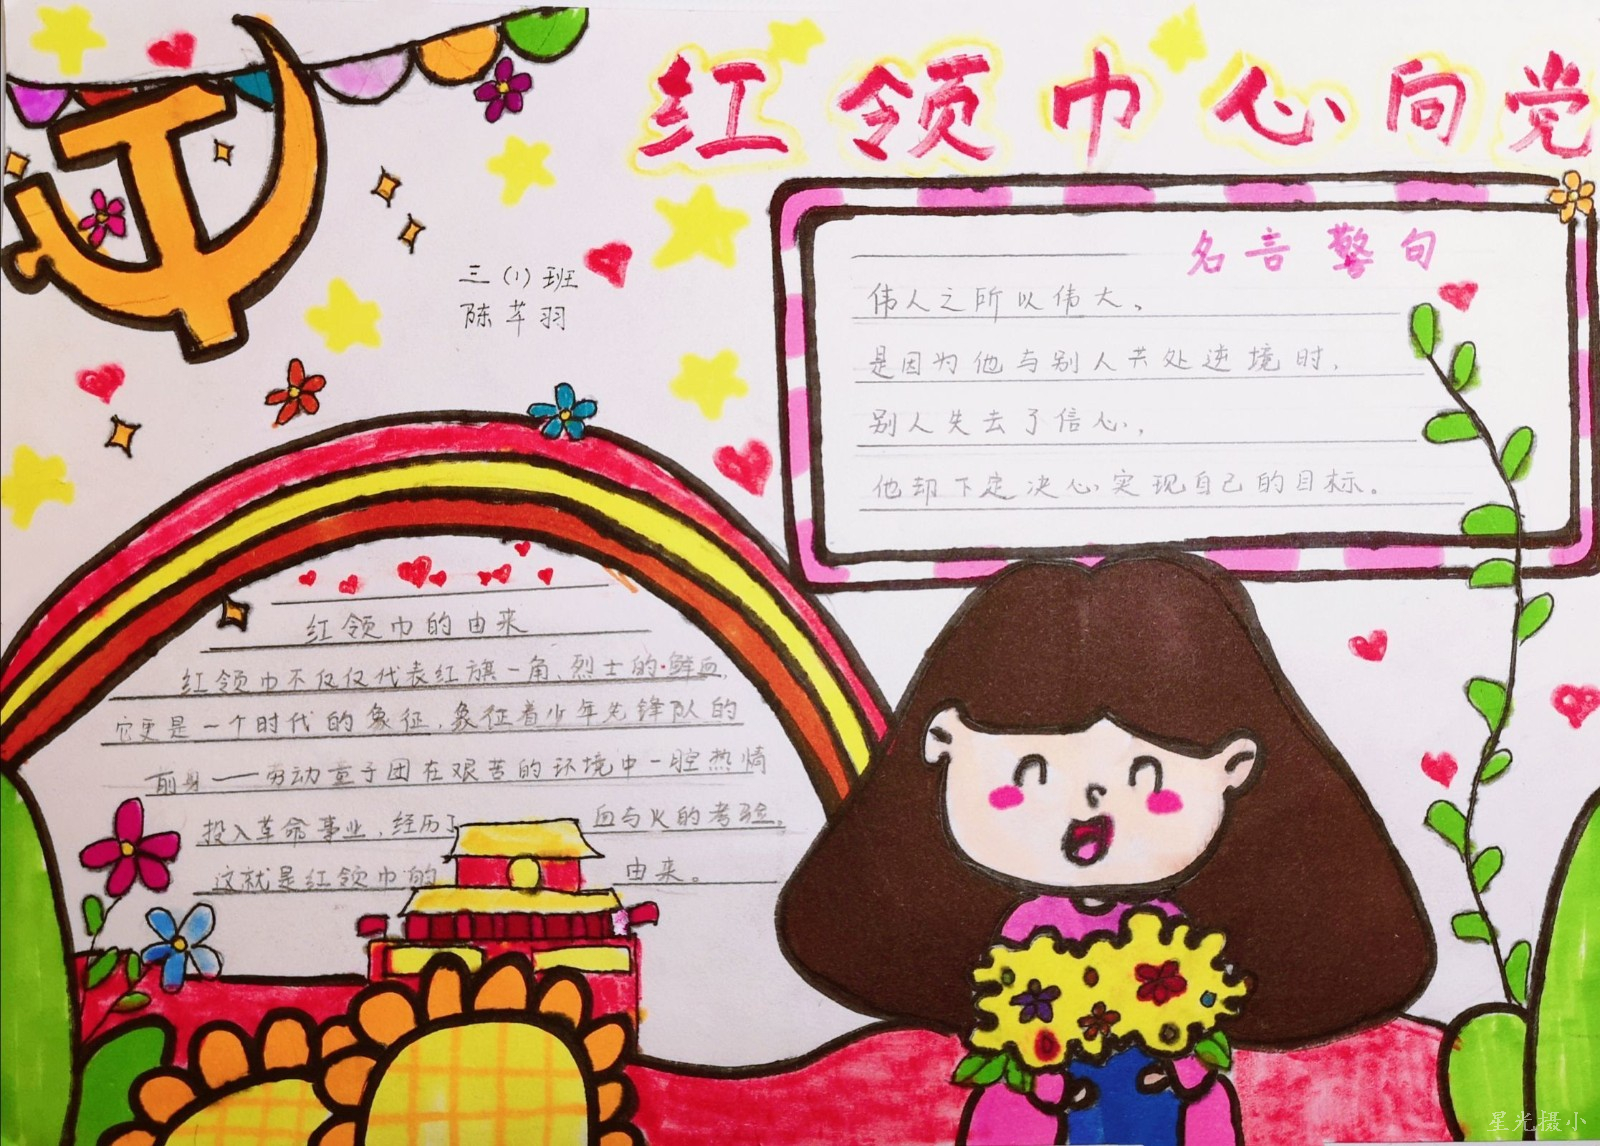 红领巾心向党
三(1)班
陈芊羽
名言警句
伟人之所以伟大、
是因为他与别人共处逆境时，
别人失去了信心，
他却下定决心实现自己的目标。
红领巾的由来
红领巾不仅仅代表红旗一角、烈士的鲜血，
它更是一个时代的象征，象征着少年先锋队的
前身——劳动童子团在艰苦的环境中一腔热情
投入革命事业，经历了血与火的考验，
这就是红领巾的由来。
星光摄小